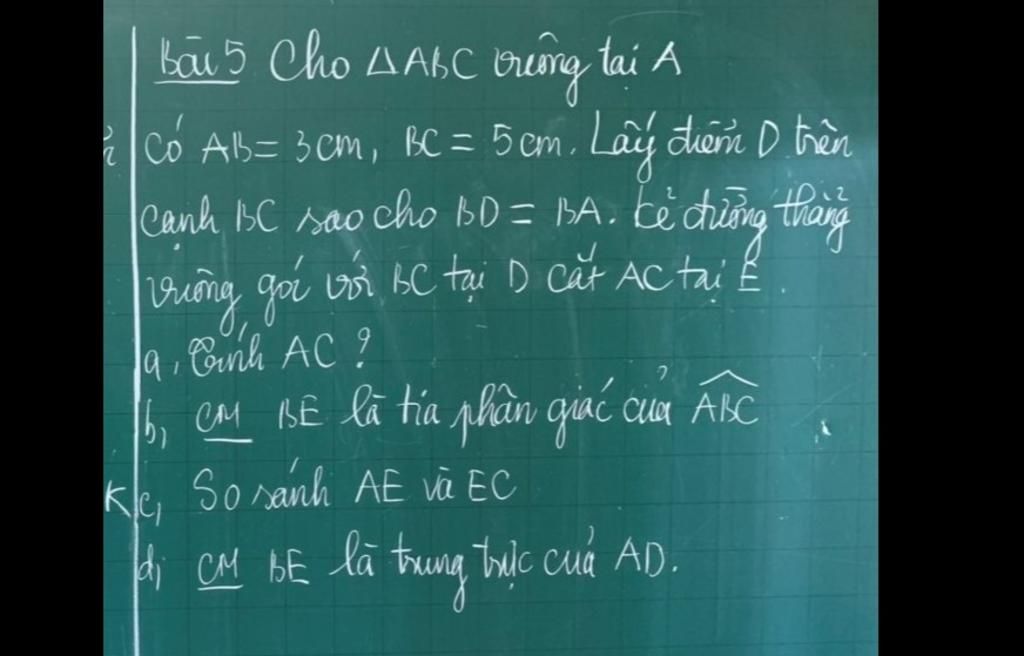 Bài 5 Cho ΔABC vuông tại A
Có AB = 3cm, BC = 5cm. Lấy điểm D trên
cạnh BC sao cho BD = BA. Kẻ đường thẳng
vuông góc với BC tại D cắt AC tại E.
a, Tính AC?
b, CM BE là tia phân giác của \widehat{ABC}
K c, So sánh AE và EC
d, CM BE là trung trực của AD.